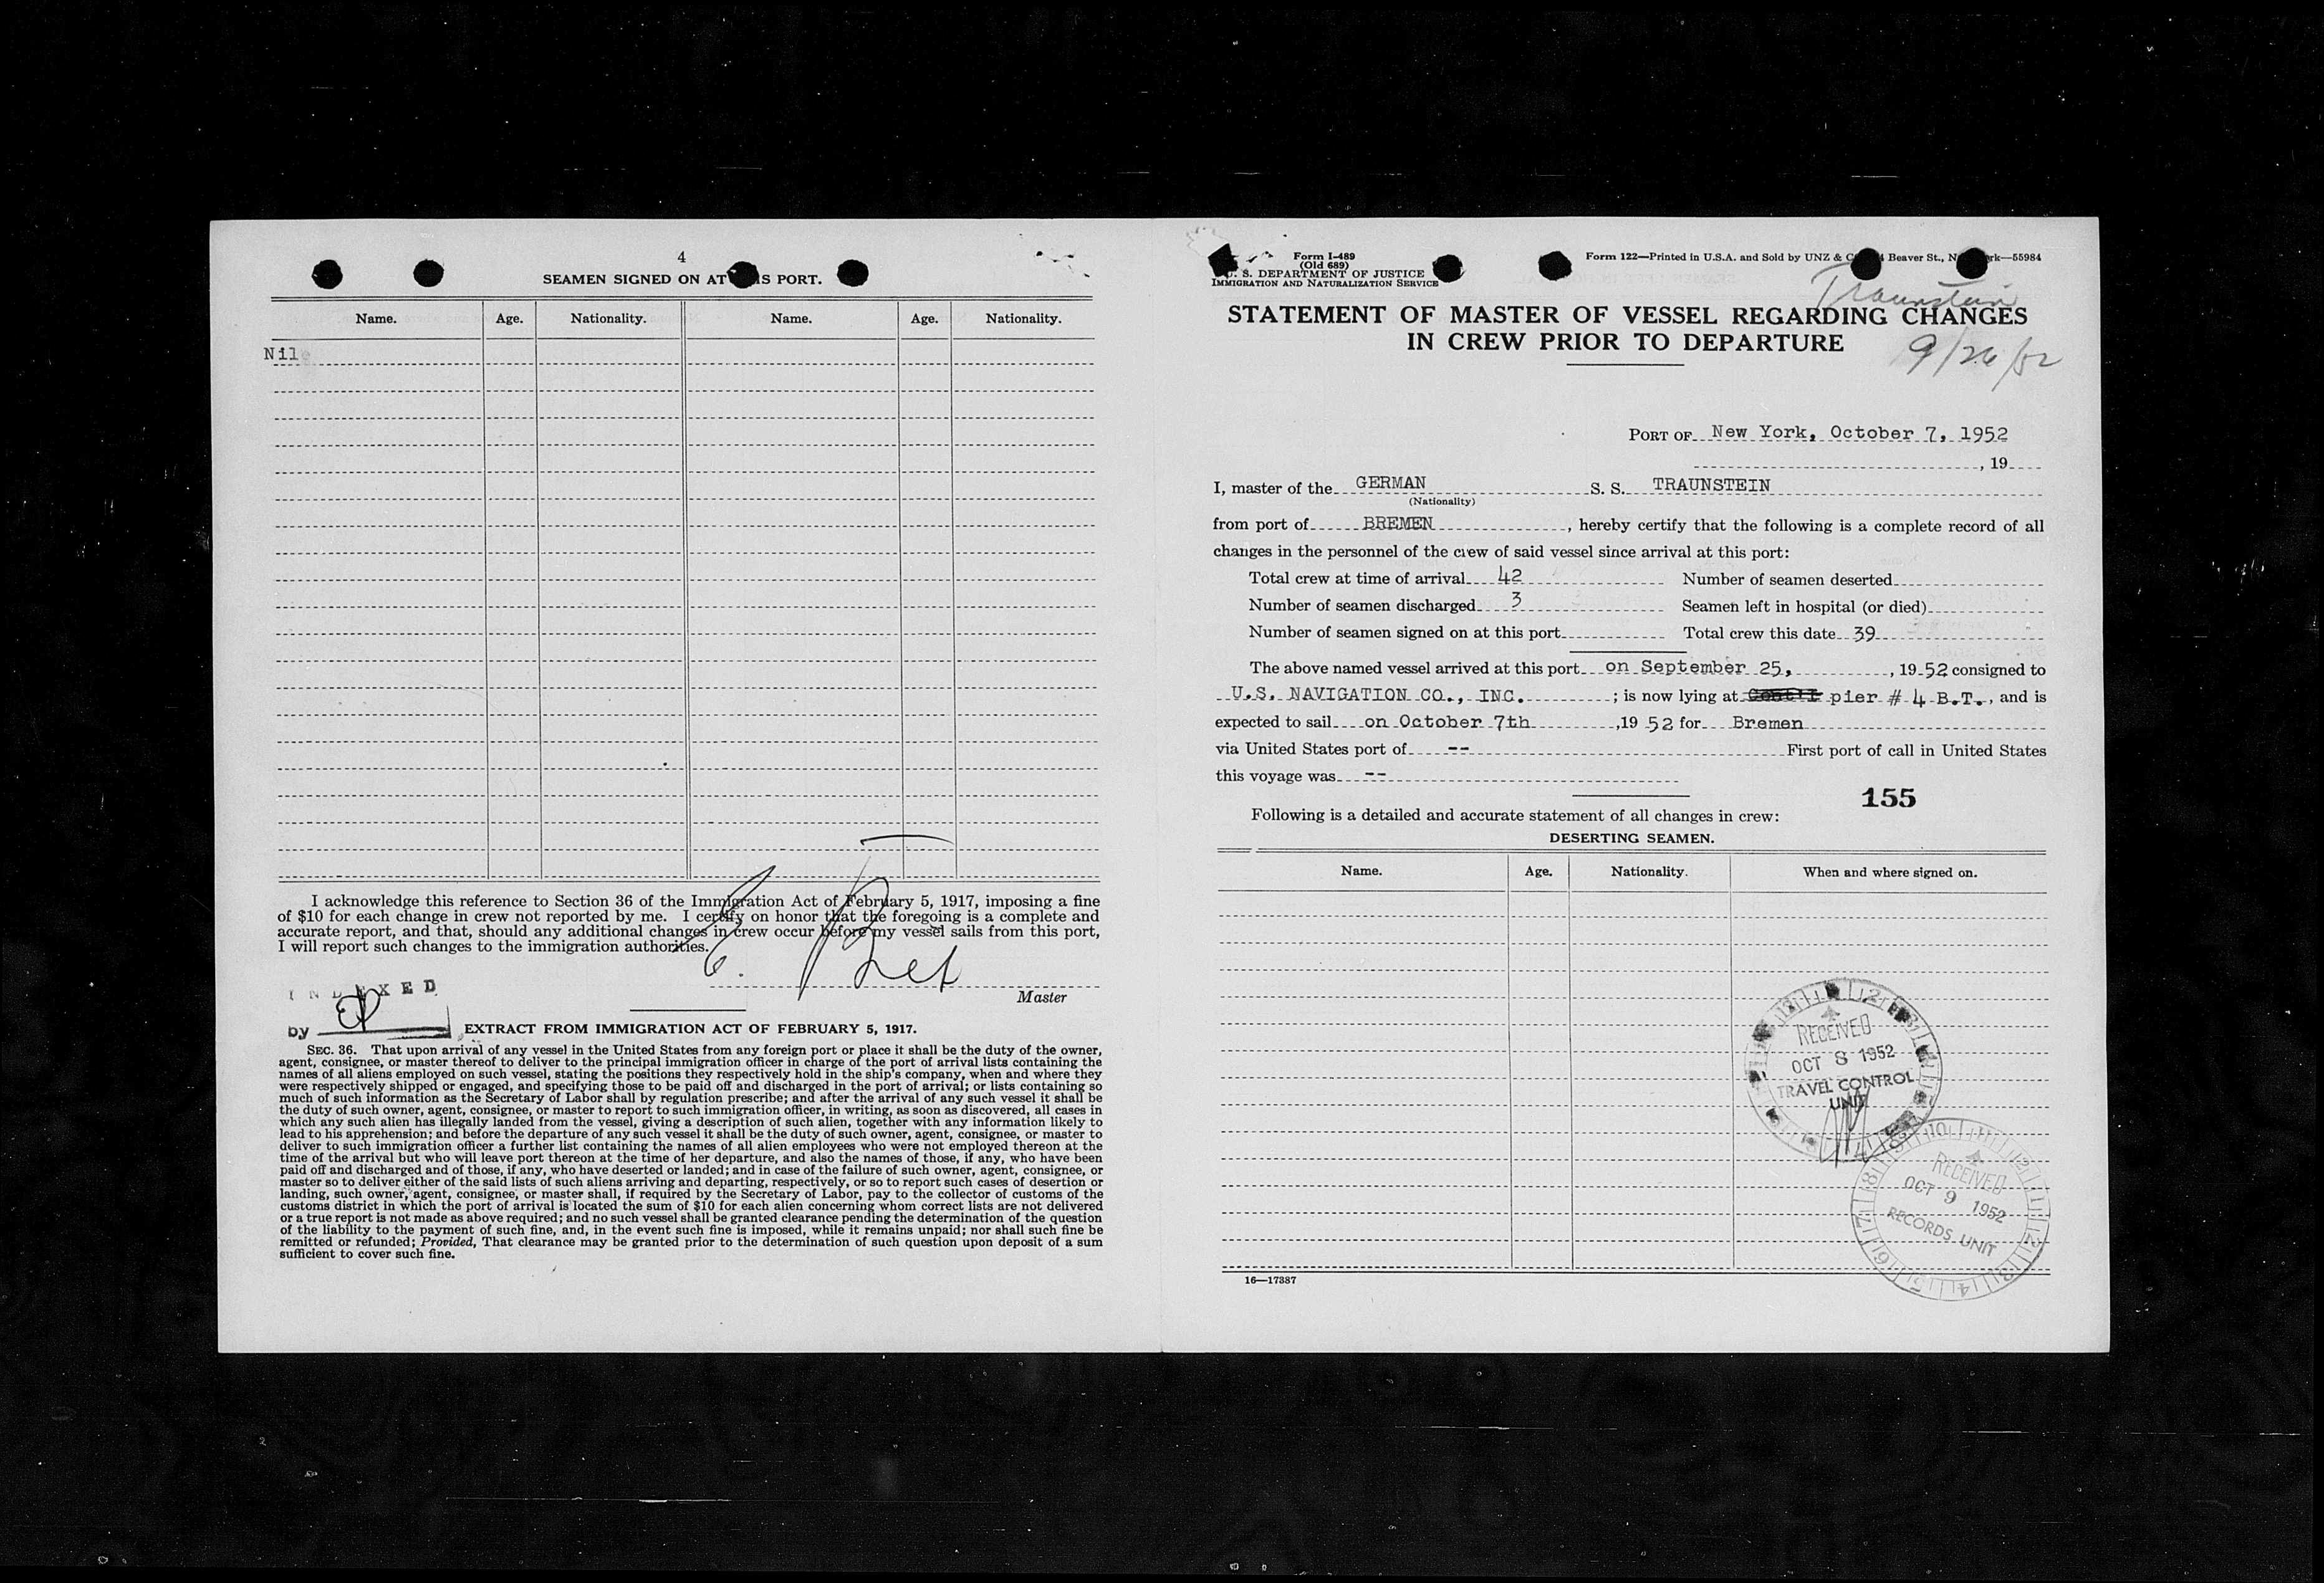 4
SEAMEN SIGNED ON AT THIS PORT.
Name. Age. Nationality. Name. Age. Nationality.
Nil
I acknowledge this reference to Section 36 of the Immigration Act of February 5, 1917, imposing a fine
of $10 for each change in crew not reported by me. I certify on honor that the foregoing is a complete and
accurate report, and that, should any additional changes in crew occur before my vessel sails from this port,
I will report such changes to the immigration authorities.
E.
Master
INDEXED
by
EXTRACT FROM IMMIGRATION ACT OF FEBRUARY 5, 1917.
SEC. 36. That upon arrival of any vessel in the United States from any foreign port or place it shall be the duty of the owner,
agent, consignee, or master thereof to deliver to the principal immigration officer in charge of the port of arrival lists containing the
names of all aliens employed on such vessel, stating the positions they respectively hold in the ship's company, when and where they
were respectively shipped or engaged, and specifying those to be paid off and discharged in the port of arrival; or lists containing so
much of such information as the Secretary of Labor shall by regulation prescribe; and after the arrival of any such vessel it shall be
the duty of such owner, agent, consignee, or master to report to such immigration officer, in writing, as soon as discovered, all cases in
which any such alien has illegally landed from the vessel, giving a description of such alien, together with any information likely to
lead to his apprehension; and before the departure of any such vessel it shall be the duty of such owner, agent, consignee, or master to
deliver to such immigration officer a further list containing the names of all alien employees who were not employed thereon at the
time of the arrival but who will leave port thereon at the time of her departure, and also the names of those, if any, who have been
paid off and discharged and of those, if any, who have deserted or landed; and in case of the failure of such owner, agent, consignee, or
master so to deliver either of the said lists of such aliens arriving and departing, respectively, or so to report such cases of desertion or
landing, such owner, agent, consignee, or master shall, if required by the Secretary of Labor, pay to the collector of customs of the
customs district in which the port of arrival is located the sum of $10 for each alien concerning whom correct lists are not delivered
or a true report is not made as above required; and no such vessel shall be granted clearance pending the determination of the question
of the liability to the payment of such fine, and, in the event such fine is imposed, while it remains unpaid; nor shall such fine be
remitted or refunded; Provided, That clearance may be granted prior to the determination of such question upon deposit of a sum
sufficient to cover such fine.
Form I-489
(Old 689)
U. S. DEPARTMENT OF JUSTICE
IMMIGRATION AND NATURALIZATION SERVICE
Form 122—Printed in U.S.A. and Sold by UNZ & Beaver St., New York—55984
Traunstein
STATEMENT OF MASTER OF VESSEL REGARDING CHANGES
IN CREW PRIOR TO DEPARTURE
9/26/52
PORT OF New York, October 7, 1952
, 19
I, master of the GERMAN S. S. TRAUNSTEIN
(Nationality)
from port of BREMEN , hereby certify that the following is a complete record of all
changes in the personnel of the crew of said vessel since arrival at this port:
Total crew at time of arrival 42 Number of seamen deserted
Number of seamen discharged 3 Seamen left in hospital (or died)
Number of seamen signed on at this port Total crew this date 39
The above named vessel arrived at this port on September 25, , 1952 consigned to
U.S. NAVIGATION CO., INC. ; is now lying at pier # 4 B.T., and is
expected to sail on October 7th ,19 52 for Bremen
via United States port of -- First port of call in United States
this voyage was --
155
Following is a detailed and accurate statement of all changes in crew:
DESERTING SEAMEN.
Name. Age. Nationality. When and where signed on.
RECEIVED
OCT 8 1952
TRAVEL CONTROL
UNIT
RECEIVED
OCT 9 1952
RECORDS UNIT
16—17387